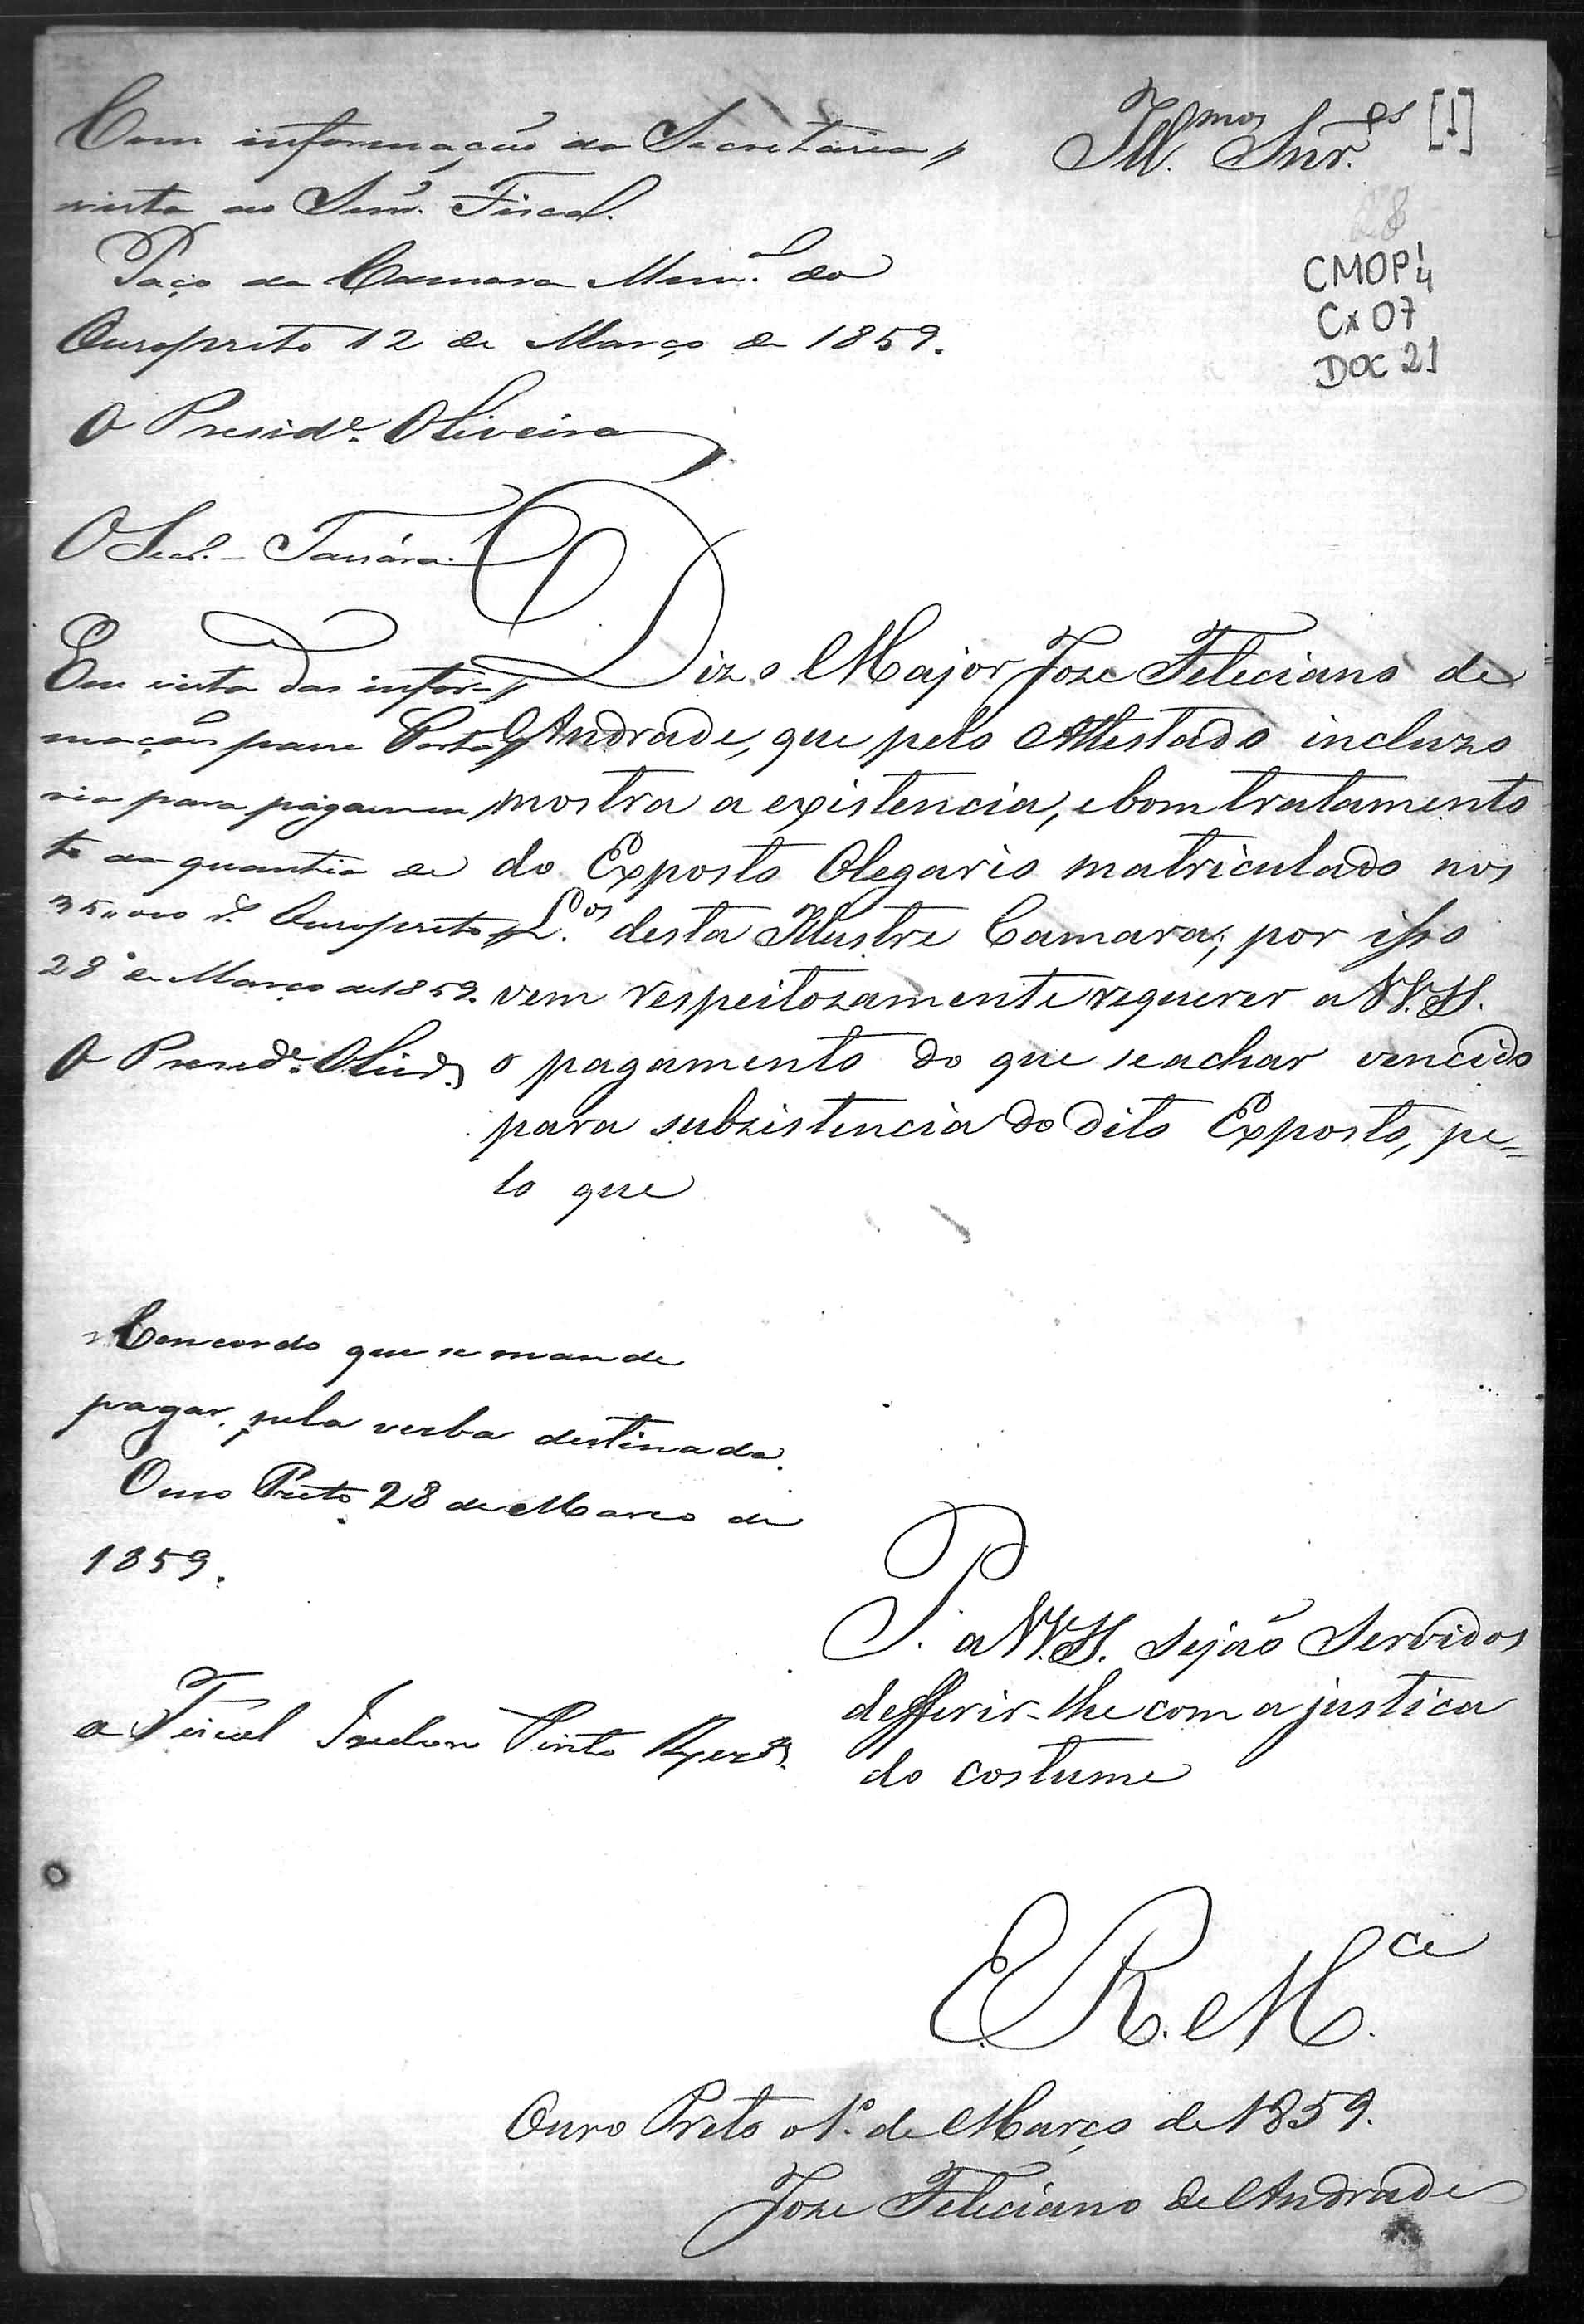 Illmos Snr.es [1]
CMOP 1/4
Cx 07
DOC 21
Com informação da Secretaria
vista ao Snr. Fiscal.
Paço da Camara Mun.al do
Ouropreto 12 de Março de 1859.
O Presid.e Oliveira
O Secr.
Em vista das infor-
mações passe Porta
ria para pagamen
to da quantia de
35,,000 rs. Ouropreto
28 de Março de 1859.
O Presid.e Oliv.ra
Diz o Major Joze Feleciano de
Andrade, que pelo Attestado incluzo
mostra a existencia, e bom tratamento
do Exposto Olegario matriculado nos
L.os desta Illustre Camara; por isso
vem respeitozamente requerer a VV.SS.
o pagamento do que se achar vencido
para subzistencia do dito Exposto, pe=
lo que
Concordo que se mande
pagar pela verba destinada.
Ouro Preto 28 de Março de
1859.
O Fiscal Pinto
P. a VV.SS. sejão Servidos
defferir-lhe com a justica
do costume
E. R. M.ce
Ouro Preto o 1.º de Março de 1859.
Joze Feleciano de Andrade